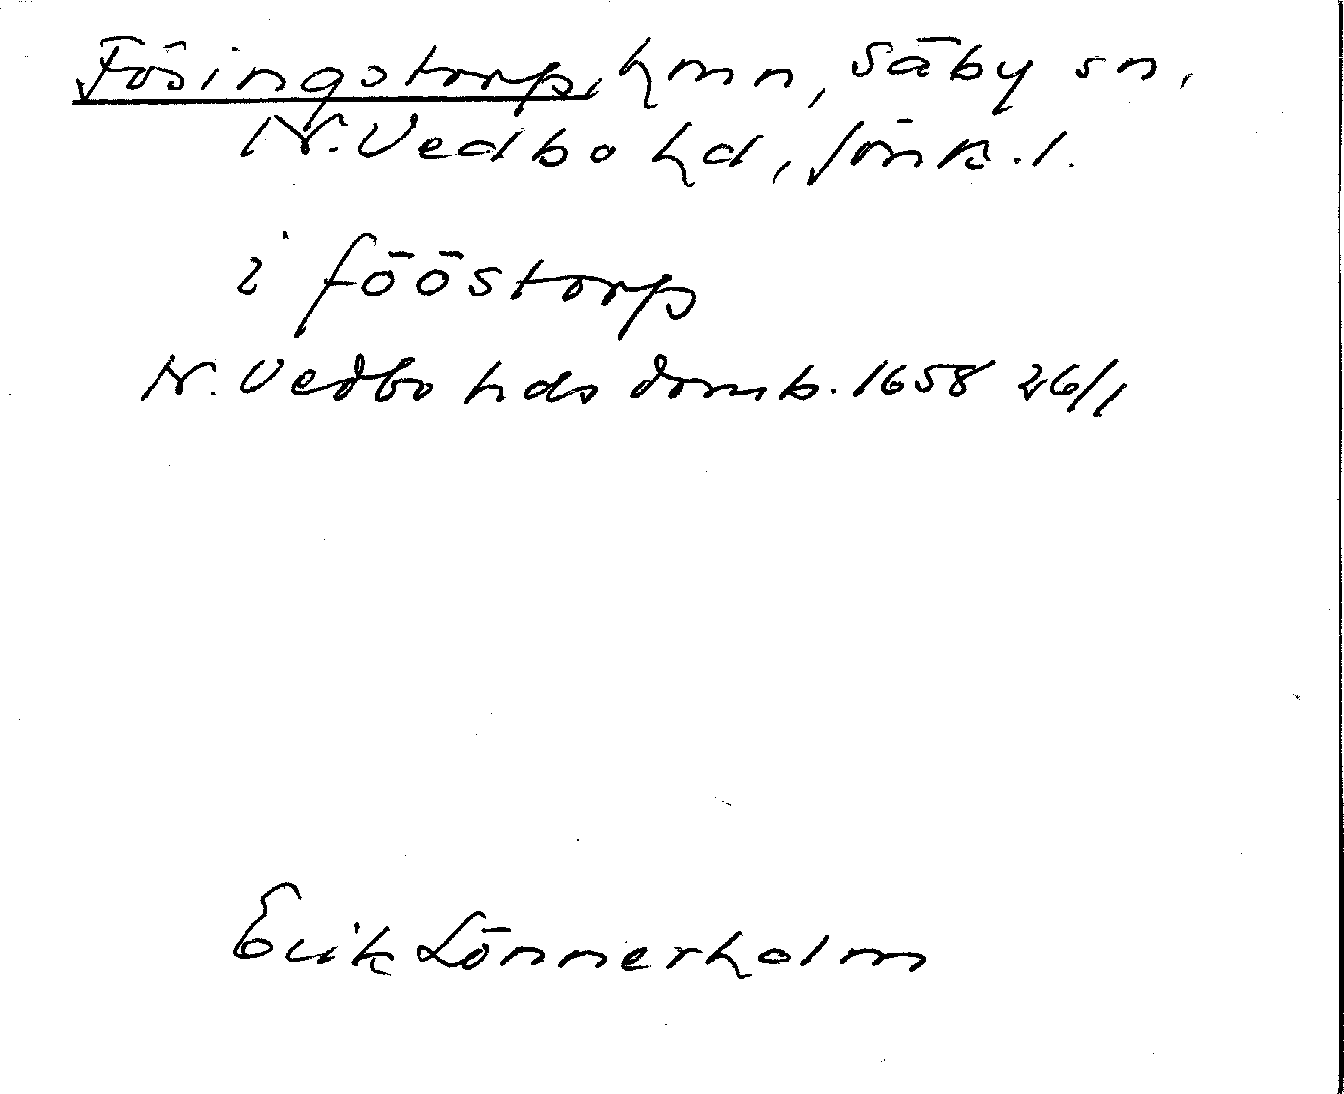 Fösingstorp, hmn, Säby sn,
N. Vedbo hd, Jönk. l.
i fööstorp
N. Vedbo hds domb. 1658 26/1
Erik Lönnerholm